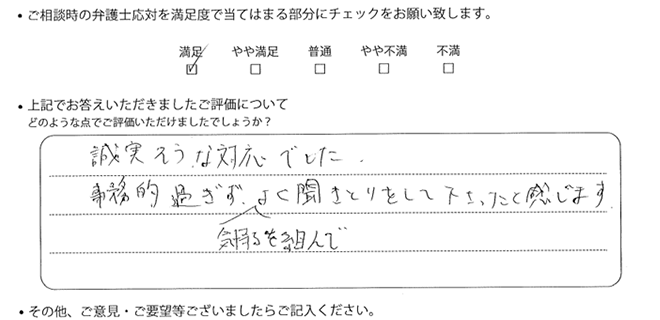 • ご相談時の弁護士応対を満足度で当てはまる部分にチェックをお願い致します。
満足 やや満足 普通 やや不満 不満
☑ □ □ □ □
• 上記でお答えいただきましたご評価について
どのような点でご評価いただけましたでしょうか？
誠実そうな対応でした.
事務的過ぎず、よく聞きとりをして下さったと感じます
気持ちを組んで
• その他、ご意見・ご要望等ございましたらご記入ください。